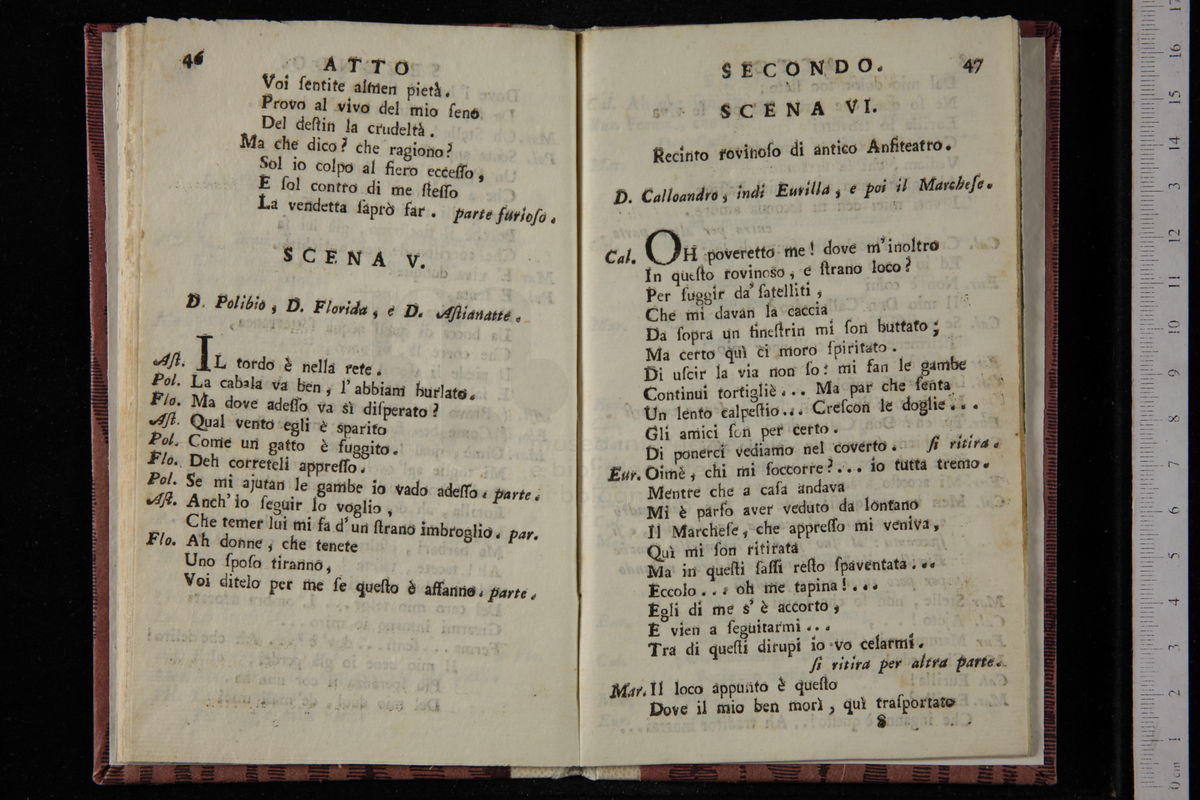 46
ATTO
Voi ſentite almen pietà.
Provo al vivo del mio ſeno
Del deſtin la crudeltà.
Ma che dico? che ragiono?
Sol io colpo al fiero ecceſſo,
E ſol contro di me ſteſſo
La vendetta ſaprò far. parte furioſo.
SCENA V.
D. Polibio, D. Florida, e D. Aſtianatte.
Aſt. IL tordo è nella rete.
Pol. La cabala va ben, l'abbiam burlato.
Flo. Ma dove adeſſo va sì diſperato?
Aſt. Qual vento egli è sparito
Pol. Come un gatto è fuggito.
Flo. Deh correteli appreſſo.
Pol. Se mi ajutan le gambe io vado adeſſo. parte.
Aſt. Anch'io ſeguir lo voglio,
Che temer lui mi fa d'un ſtrano imbroglio. par.
Flo. Ah donne, che tenete
Uno ſpoſo tiranno,
Voi ditelo per me ſe queſto è affanno. parte.
SECONDO. 47
SCENA VI.
Recinto rovinoſo di antico Anfiteatro.
D. Calloandro, indi Eurilla, e poi il Marcheſe.
Cal. OH poveretto me! dove m'inoltro
In queſto rovinoso, e ſtrano loco?
Per fuggir da' ſatelliti,
Che mi davan la caccia
Da ſopra un fineſtrin mi ſon buttato;
Ma certo quì ci moro ſpiritato.
Di uſcir la via non ſo: mi fan le gambe
Continui tortigliè... Ma par che ſenta
Un lento calpeſtio... Creſcon le doglie...
Gli amici ſon per certo.
Di ponerci vediamo nel coverto. ſi ritira.
Eur. Oimè, chi mi ſoccorre?... io tutta tremo.
Mentre che a caſa andava
Mi è parſo aver veduto da lontano
Il Marcheſe, che appreſſo mi veniva,
Quì mi ſon ritirata
Ma in queſti ſaſſi reſto ſpaventata...
Eccolo... oh me tapina!...
Egli di me s'è accorto,
E vien a ſeguitarmi...
Tra di queſti dirupi io vo celarmi.
ſi ritira per altra parte.
Mar. Il loco appunto è queſto
Dove il mio ben morì, quì traſportato